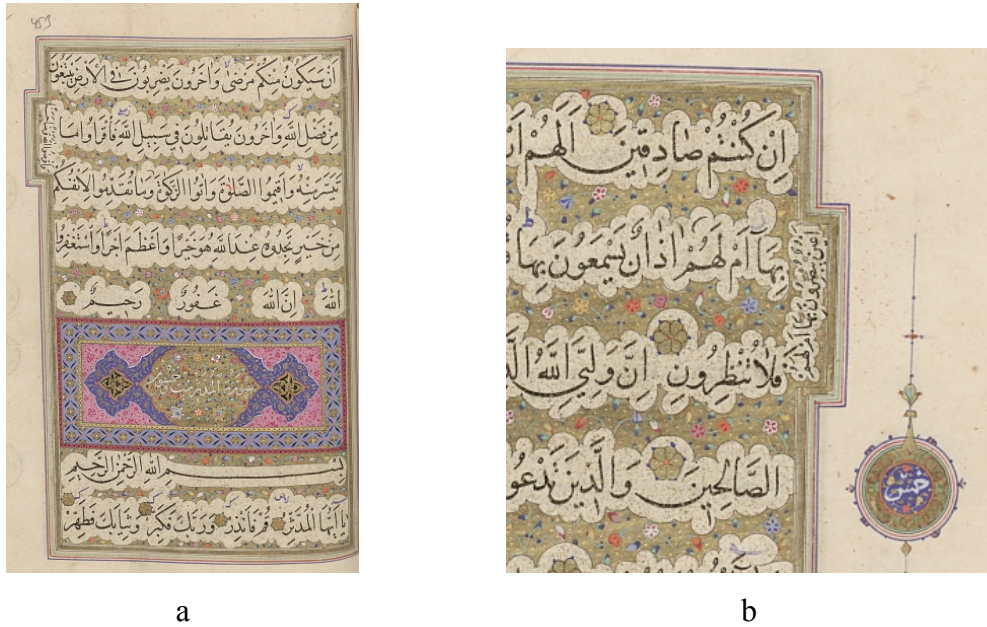 اَنْ سَيَكُونُ مِنْكُمْ مَرْضٰى وَاٰخَرُونَ يَضْرِبُونَ فِي الْاَرْضِ يَبْتَغُونَ
مِنْ فَضْلِ اللهِ وَاٰخَرُونَ يُقَاتِلُونَ فِي سَبِيلِ اللهِ فَاقْرَاُوا مَا
تَيَسَّرَ مِنْهُ وَاَقِيمُوا الصَّلٰوةَ وَاٰتُوا الزَّكٰوةَ وَمَا تُقَدِّمُوا لِاَنْفُسِكُمْ
مِنْ خَيْرٍ تَجِدُوهُ عِنْدَ اللهِ هُوَ خَيْرًا وَاَعْظَمَ اَجْرًا وَاسْتَغْفِرُوا
اللهَ اِنَّ اللهَ غَفُورٌ رَحِيمٌ
سورة المدثر
بِسْمِ اللهِ الرَّحْمٰنِ الرَّحِيمِ
يَا اَيُّهَا الْمُدَّثِّرُ قُمْ فَاَنْذِرْ وَرَبَّكَ فَكَبِّرْ وَثِيَابَكَ فَطَهِّرْ
a
اِنْ كُنْتُمْ صَادِقِينَ اَلَهُمْ
بِهَا اَمْ لَهُمْ اٰذَانٌ يَسْمَعُونَ بِهَا
اعين يبصرون بها ام لهم
فَلَا تُنْظِرُونِ اِنَّ وَلِيِّيَ اللهُ
الصَّالِحِينَ وَالَّذِينَ تَدْعُو
خمس
b